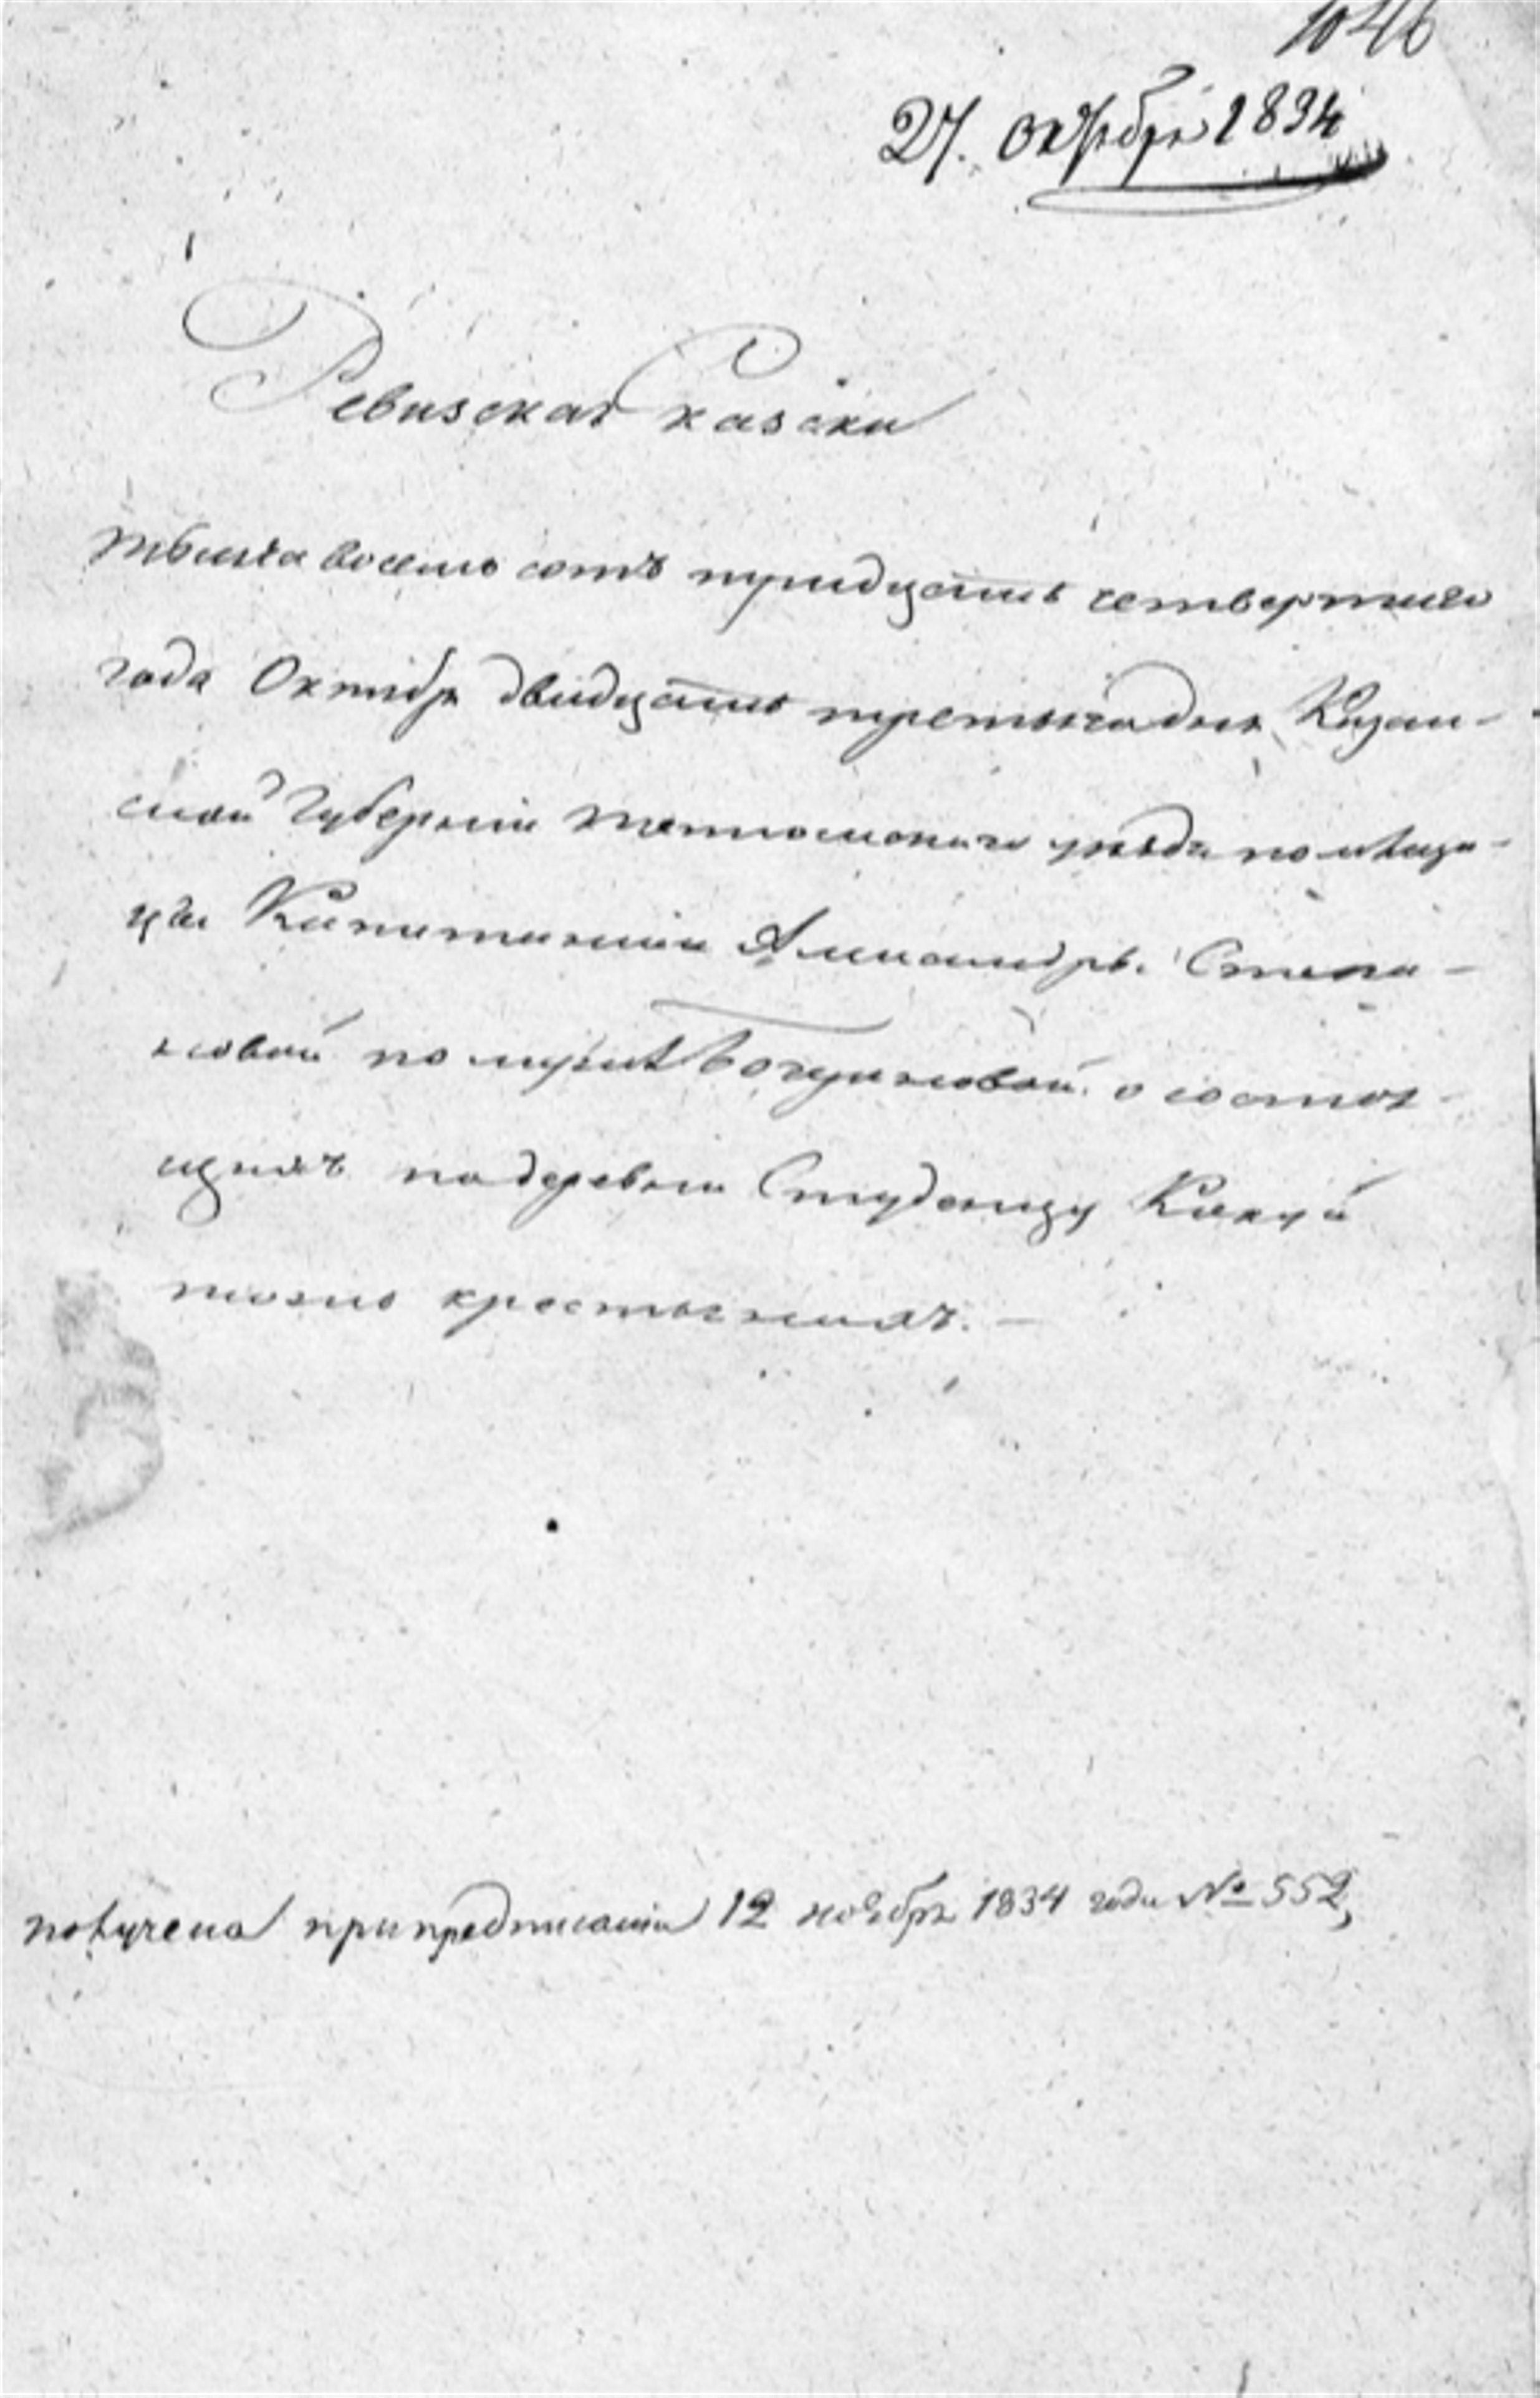 1046
27. октября 1834
Ревизская каска
тысяча восемь сотъ тридцать четвертаго
года Октября двадцать третьягодня Казан-
ской Губернии Тетюшскаго уезда помѣщи-
цы Капитанши Александры Степа-
новой по мужѣ Богдановой о состоя
щихъ подеревни Студенцу Какуй
тожно крестьянахъ. —
получена припредписании 12 ноября 1834 года № 552,